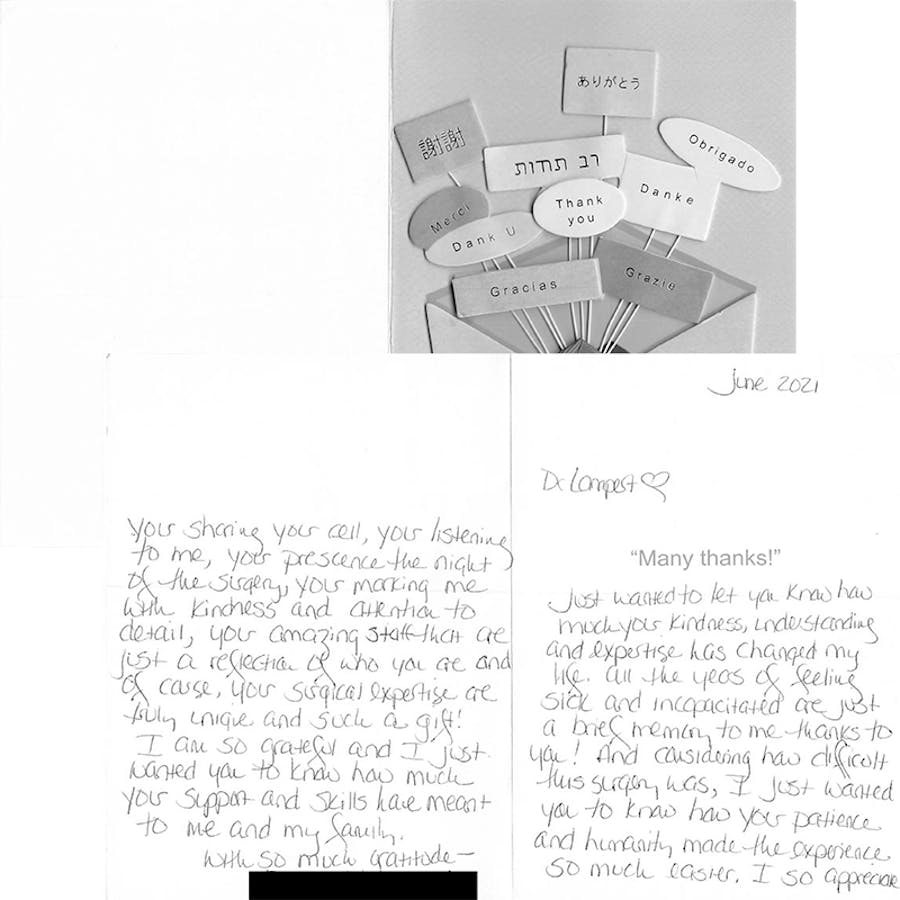 ありがとう
謝謝
רב תודות
Obrigado
Merci
Thank
you
Danke
Dank U
Gracias
Grazie
June 2021
Dr Lampert ♡
“Many thanks!”
Just wanted to let you know how
much your kindness, understanding
and expertise has changed my
life. All the years of feeling
sick and incapacitated are just
a brief memory to me thanks to
you! And considering how difficult
this surgery was, I just wanted
you to know how your patience
and humanity made the experience
so much easier. I so appreciate
your sharing your cell, your listening
to me, your prescence the night
of the surgery, your marking me
with kindness and attention to
detail, your amazing staff that are
just a reflection of who you are and
of course, your surgical expertise are
truly unique and such a gift!
I am so grateful and I just
wanted you to know how much
your support and skills have meant
to me and my family.
With so much gratitude—